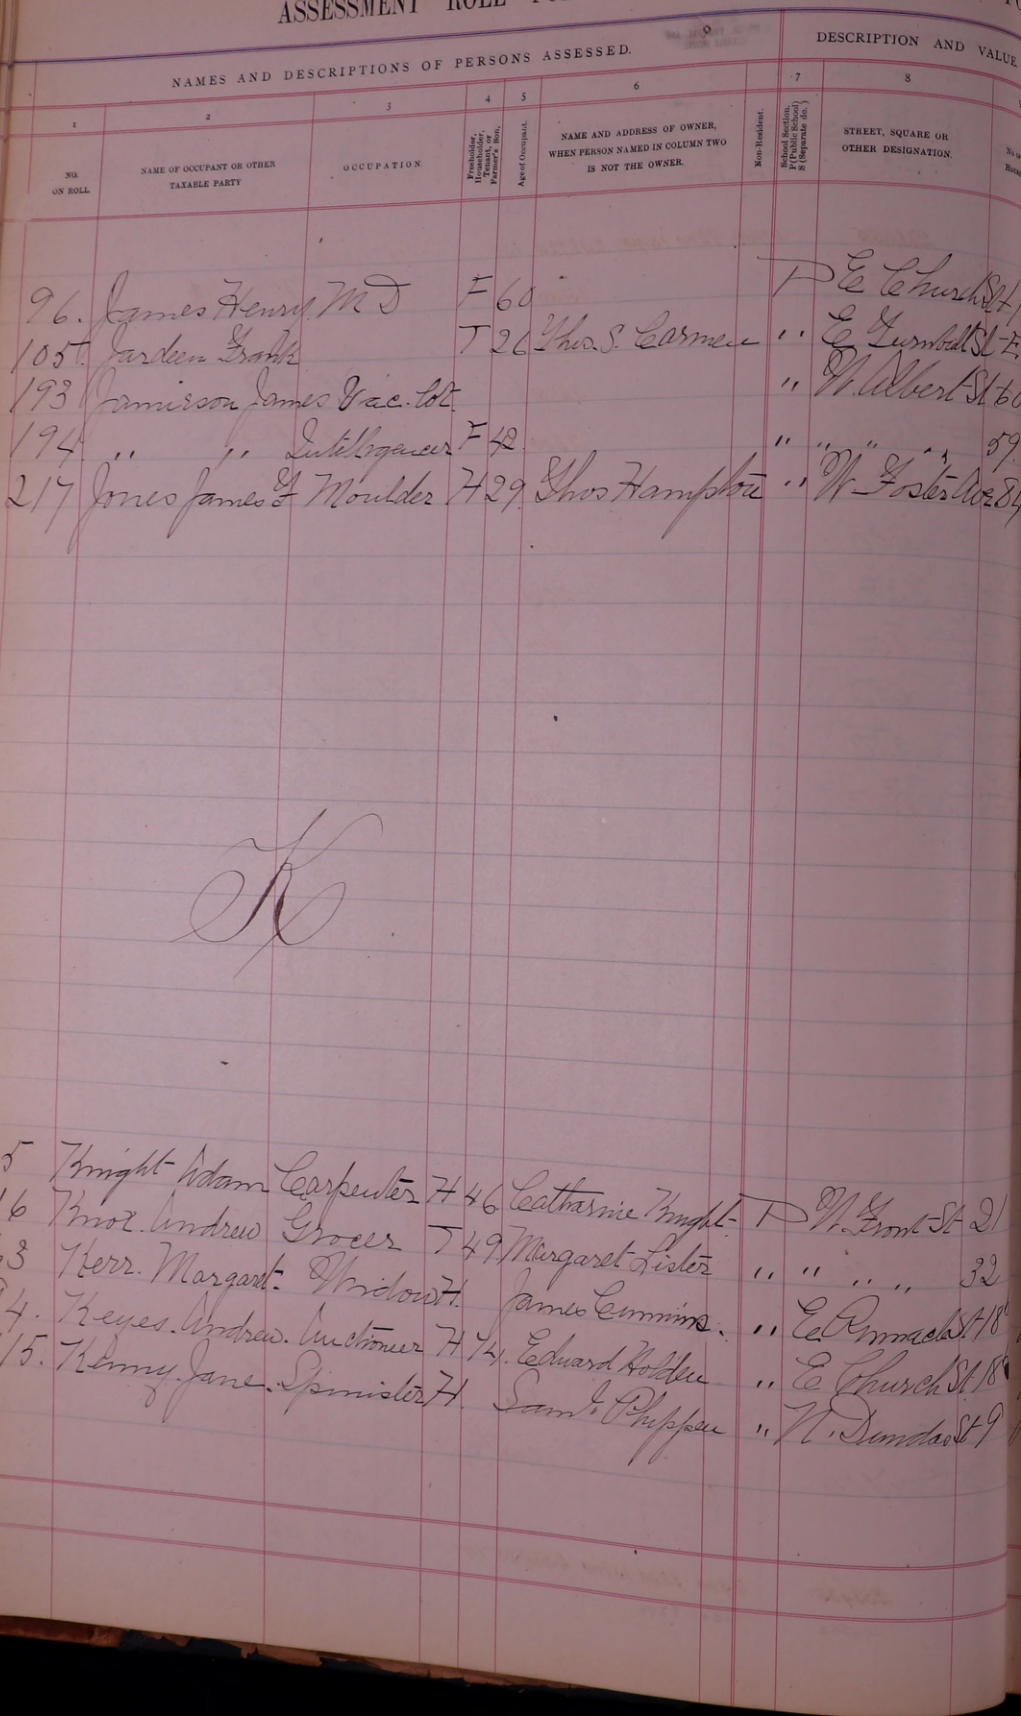 ASSESSMENT ROLL
NAMES AND DESCRIPTIONS OF PERSONS ASSESSED.
DESCRIPTION AND VALUE
1 2 3 4 5 6 7 8
NO. ON ROLL
NAME OF OCCUPANT OR OTHER TAXABLE PARTY
OCCUPATION
Freeholder, Householder, Tenant, or Farmer's Son.
Age of Occupant.
NAME AND ADDRESS OF OWNER, WHEN PERSON NAMED IN COLUMN TWO IS NOT THE OWNER.
Non-Resident.
School Section, P (Public School) S (Separate do. )
STREET, SQUARE OR OTHER DESIGNATION.
96. James Henry M D F 60 P E Church St
105 Jardein Frank T 26 Thos. S. Carmen " E Turnbull St E
193 Jamieson James Vac. Lot " W. Albert St 60
194 " " Intelligencer F 42 " " " " 59
217 Jones James F Moulder H 29 Thos Hampton " W Foster Ave 84
K
5 Knight Adam Carpenter H 46 Catharine Knight P W. Front St 21
6 Knox Andrew Grocer T 49 Margaret Lister " " " " 32
3 Kerr. Margaret. Widow H. James Cummins. " E. Pinnacle St 18
4. Keyes. Andrew. Auctioneer H 74. Edward Holden " E Church St 18
15. Kenny. Jane. Spinister H. Saml. Phippen " N. Dundas St 9